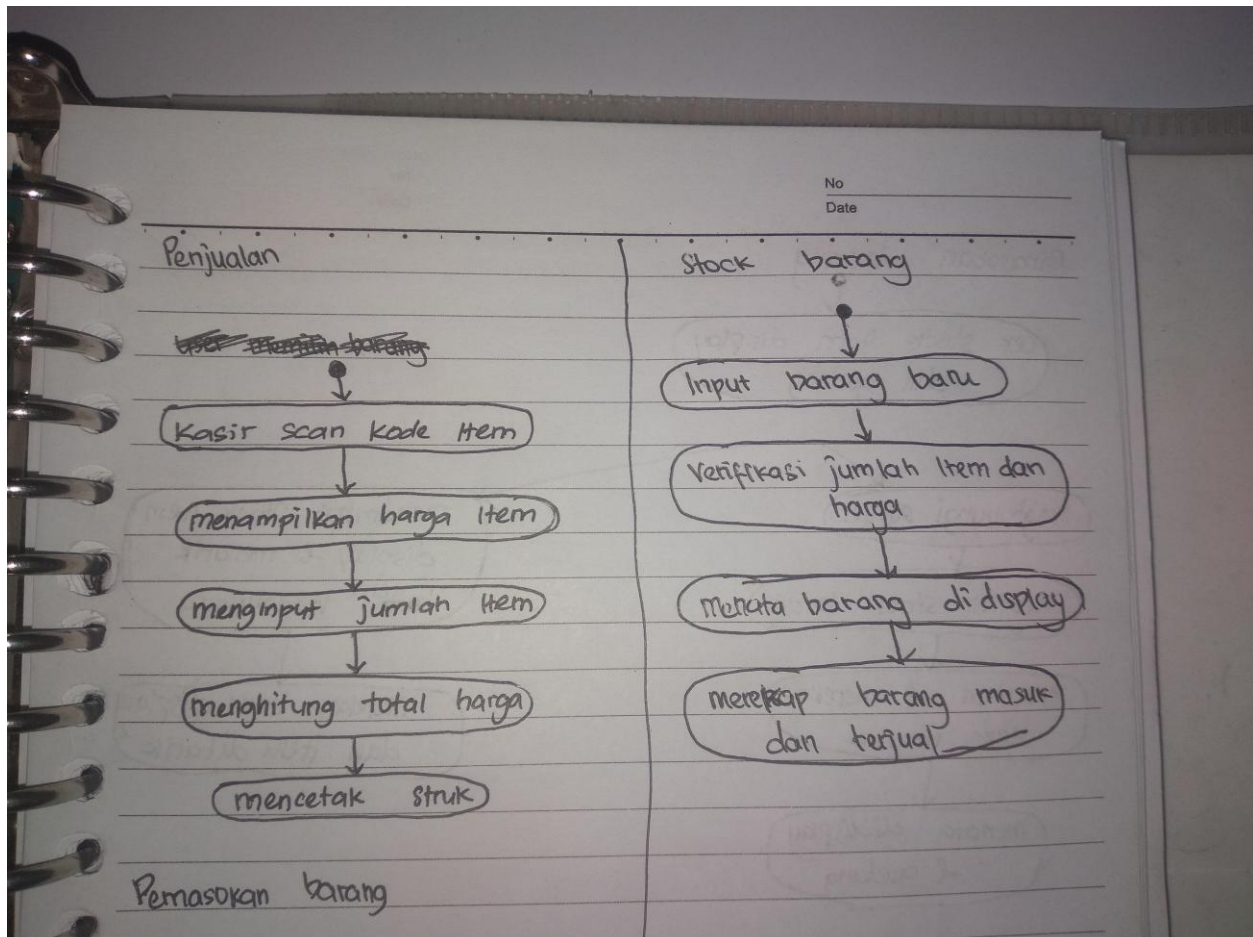 No
Date
Penjualan
user memilih barang
Kasir scan kode Item
menampilkan harga Item
menginput jumlah Item
menghitung total harga
mencetak struk
Pemasokan barang
Stock barang
Input barang baru
Verifikasi jumlah Item dan
harga
menata barang di display
merekap barang masuk
dan terjual